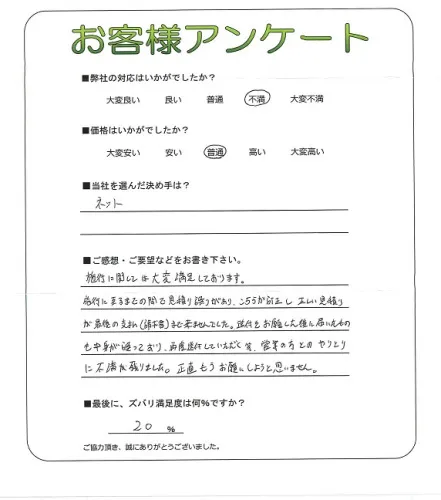 お客様アンケート
■弊社の対応はいかがでしたか？
大変良い 良い 普通 不満 大変不満
■価格はいかがでしたか？
大変安い 安い 普通 高い 大変高い
■当社を選んだ決め手は？
ネット
■ご感想・ご要望などをお書き下さい。
施行に関しては大変満足しております。
施行に至るまでの間で見積り誤りがあり、こちらが訂正し正しい見積り
が最後の支払(請求書)まで来ませんでした。送付をお願いした後に届いたもの
も中身が違っており、再度送付していただく等、営業の方とのやりとり
に不満が残りました。正直もうお願いしようと思いません。
■最後に、ズバリ満足度は何%ですか？
20 %
ご協力頂き、誠にありがとうございました。